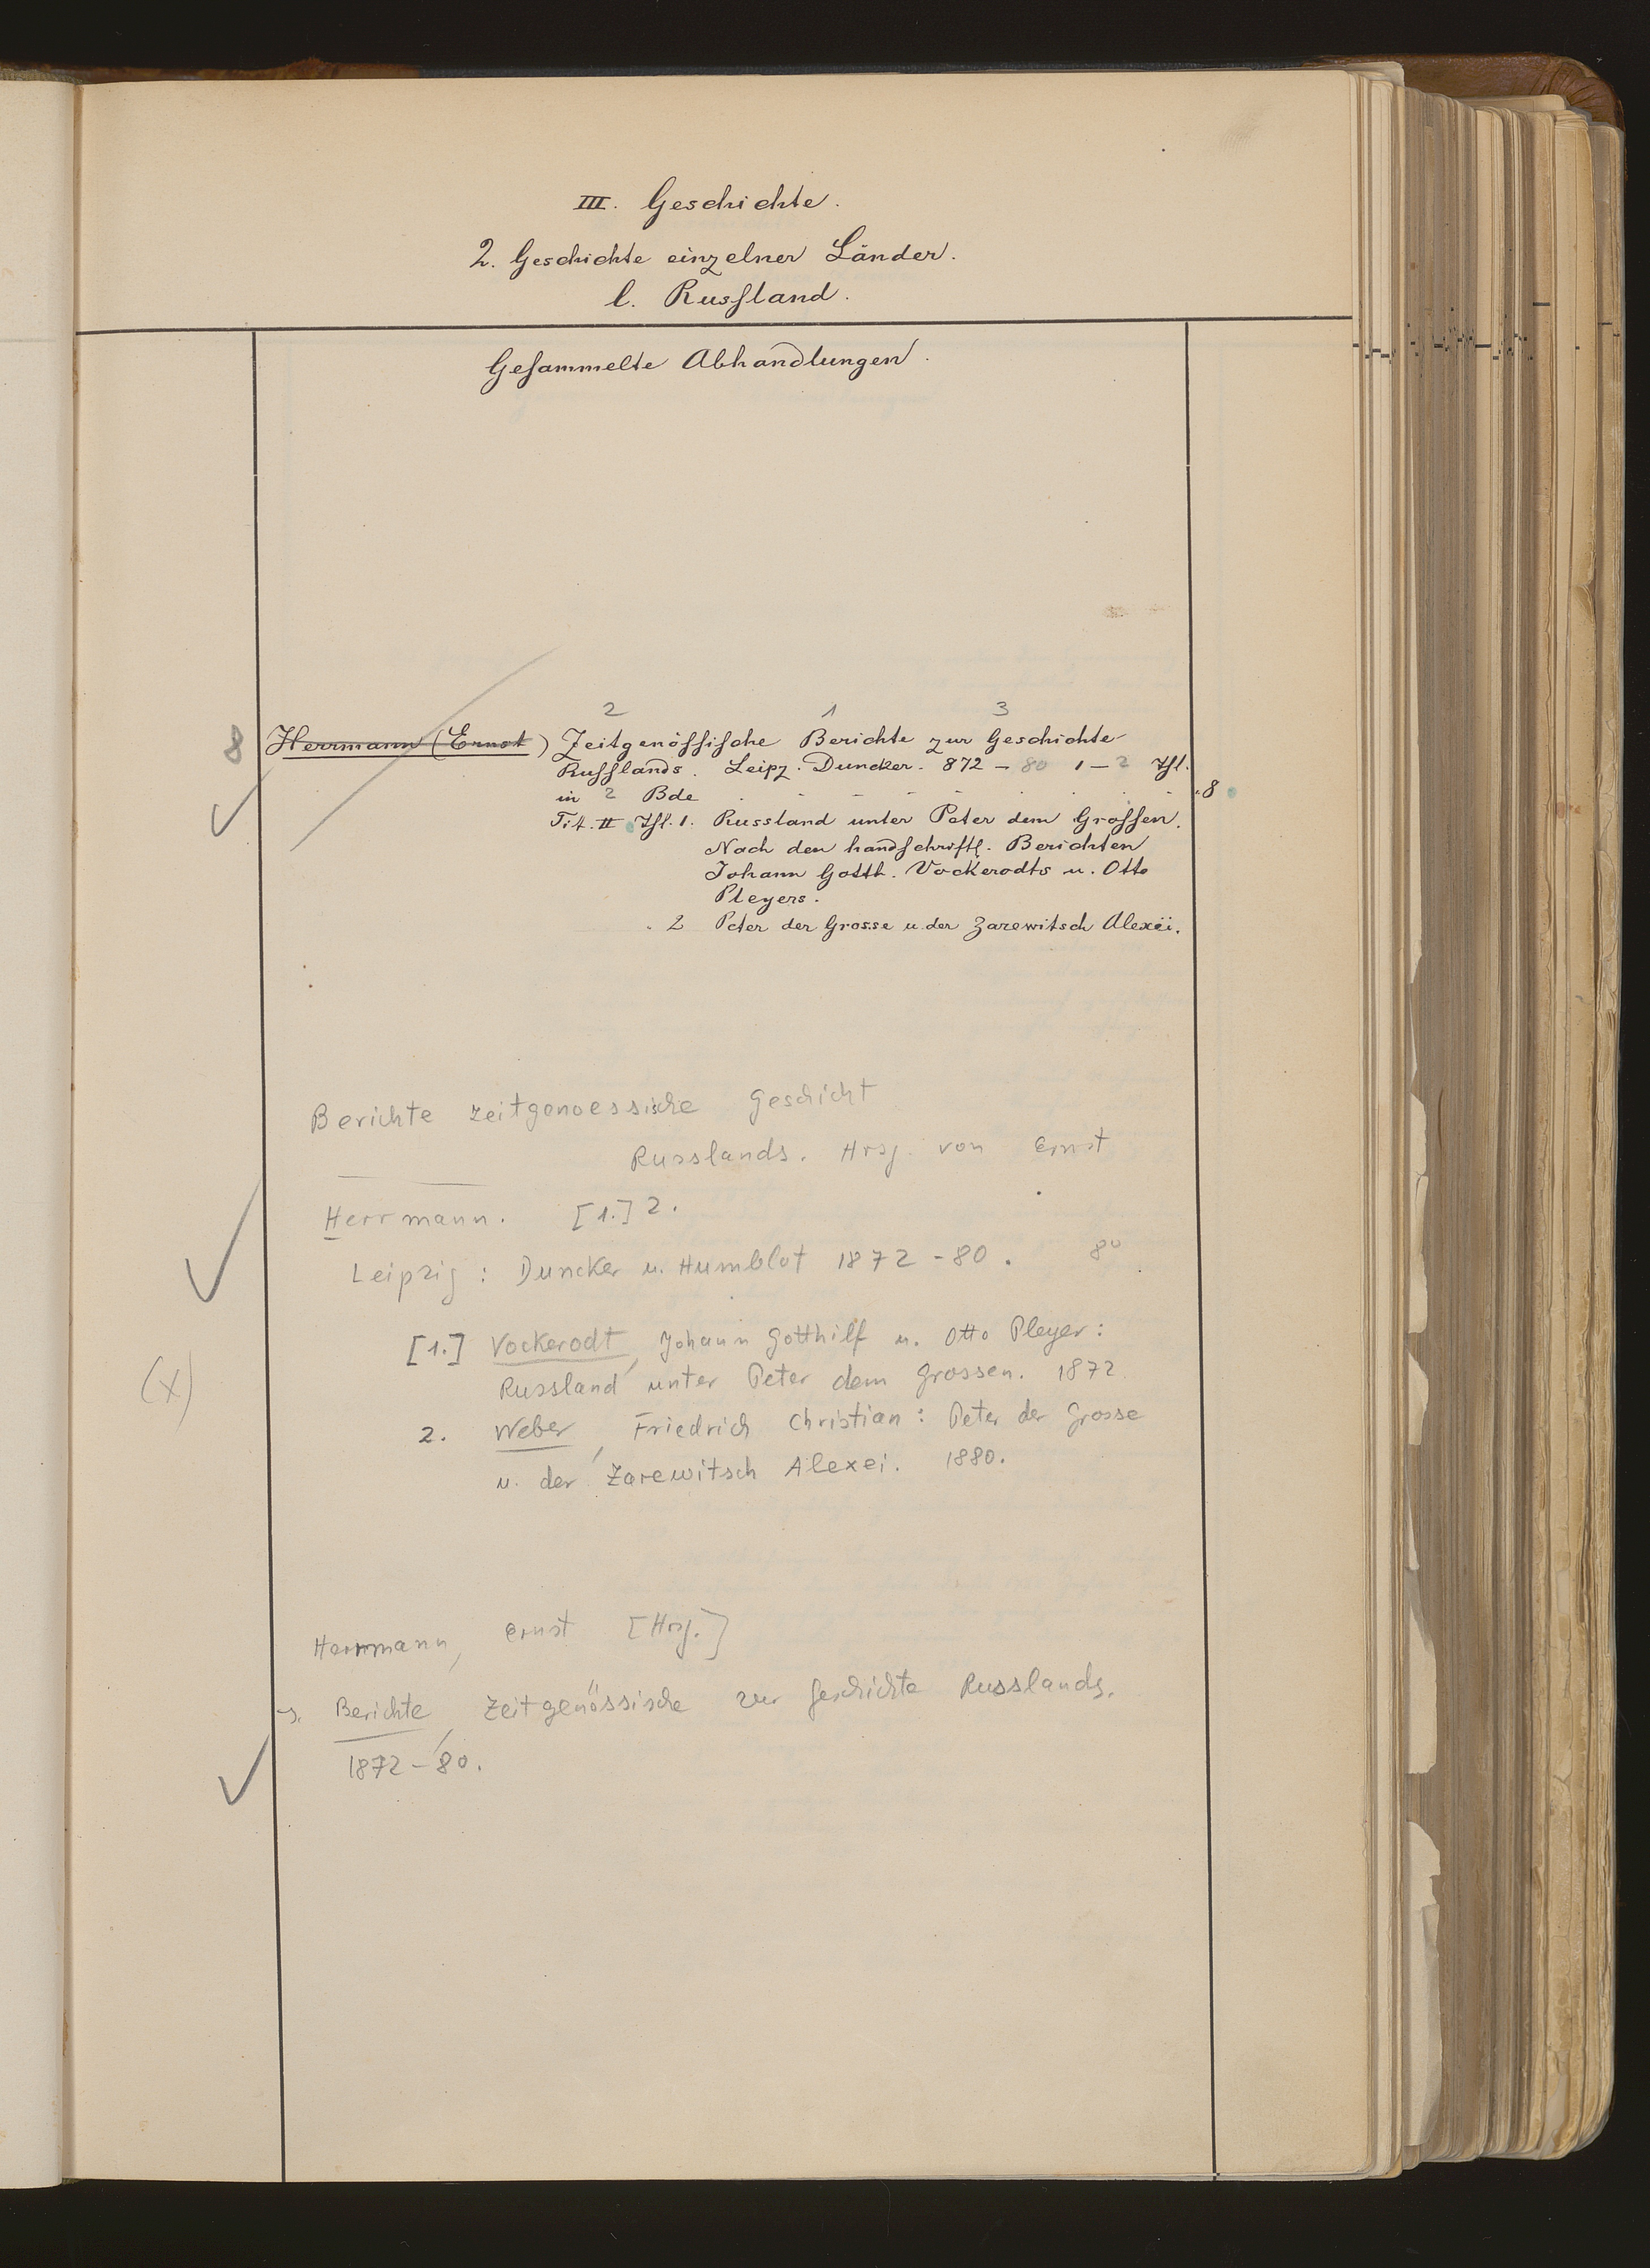 III. Geschichte.
2. Geschichte einzelner Länder.
l. Russland.
Gesammelte Abhandlungen.
2 1 3
8 Herrmann (Ernst) Zeitgenössische Berichte zur Geschichte
Russlands. Leipz. Duncker. 872 – 80 1 – 2 Thl.
in 2 Bde . 8
Tit. II Thl. 1. Russland unter Peter dem Grossen.
Nach den handschriftl. Berichten
Johann Gotth. Vockerodts u. Otto
Pleyers.
. 2 Peter der Grosse u. der Zarewitsch Alexëi.
Berichte zeitgenoessische Geschicht
Russlands. Hrsg. von Ernst
Herrmann. [1.] 2.
Leipzig : Duncker u. Humblot 1872 - 80. 8°
[1.] Vockerodt, Johann Gotthilf u. Otto Pleyer :
Russland unter Peter dem Grossen. 1872
(x)
2. Weber, Friedrich Christian : Peter der Grosse
u. der Zarewitsch Alexei. 1880.
Herrmann, Ernst [Hrsg.]
s. Berichte, Zeitgenössische zur Geschichte Russlands.
1872 – 80.